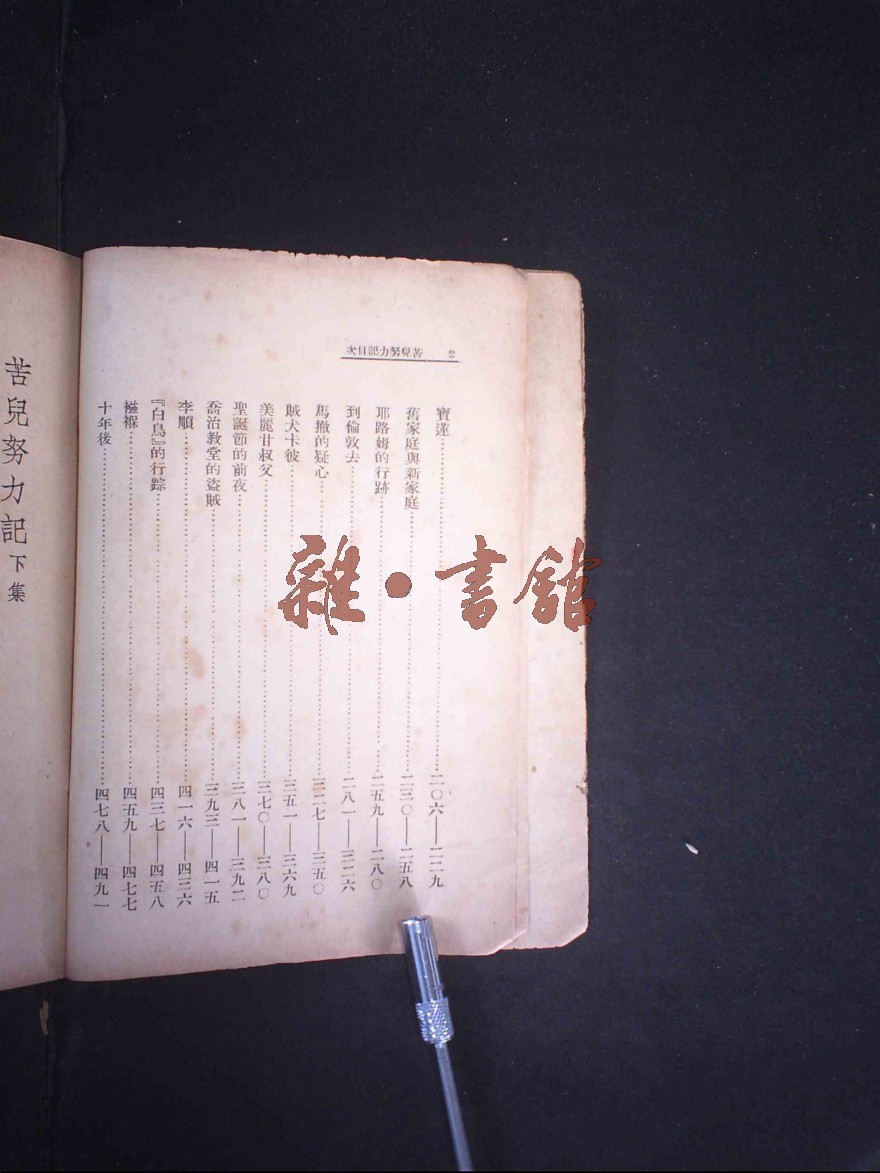 2 苦兒努力記目次
寶蓮……二〇六——二二九
舊家庭與新家庭……二三〇——二五八
耶路姆的行跡……二五九——二八〇
到倫敦去……二八一——三二六
馬撤的疑心……三二七——三五〇
賊犬卡彼……三五一——三六九
美麗甘叔父……三七〇——三八〇
聖誕節的前夜……三八一——三九二
喬治教堂的盜賊……三九三——四一五
李順……四一六——四三六
『白鳥』的行踪……四三七——四五八
襁褓……四五九——四七七
十年後……四七八——四九一
苦兒努力記 下集
雜·書館